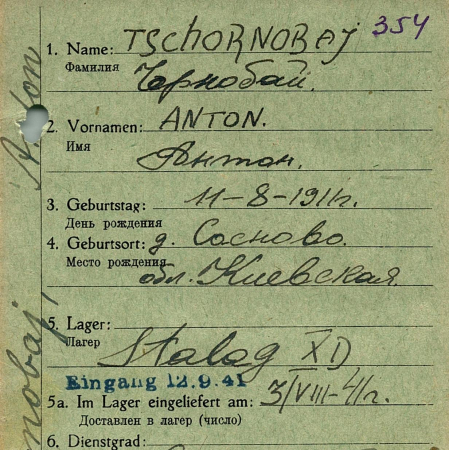 354
1. Name: TSCHORNOBAJ
Фамилия Чорнобай.
2. Vornamen: ANTON.
Имя Антон.
3. Geburtstag: 11-8-1911г.
День рождения
4. Geburtsort: д. Сосново.
Место рождения обл. Киевская.
5. Lager:
Лагер Stalag XD
Eingang 12.9.41
5a. Im Lager eingeliefert am: 3/VIII-41г.
Доставлен в лагер (число)
6. Dienstgrad: